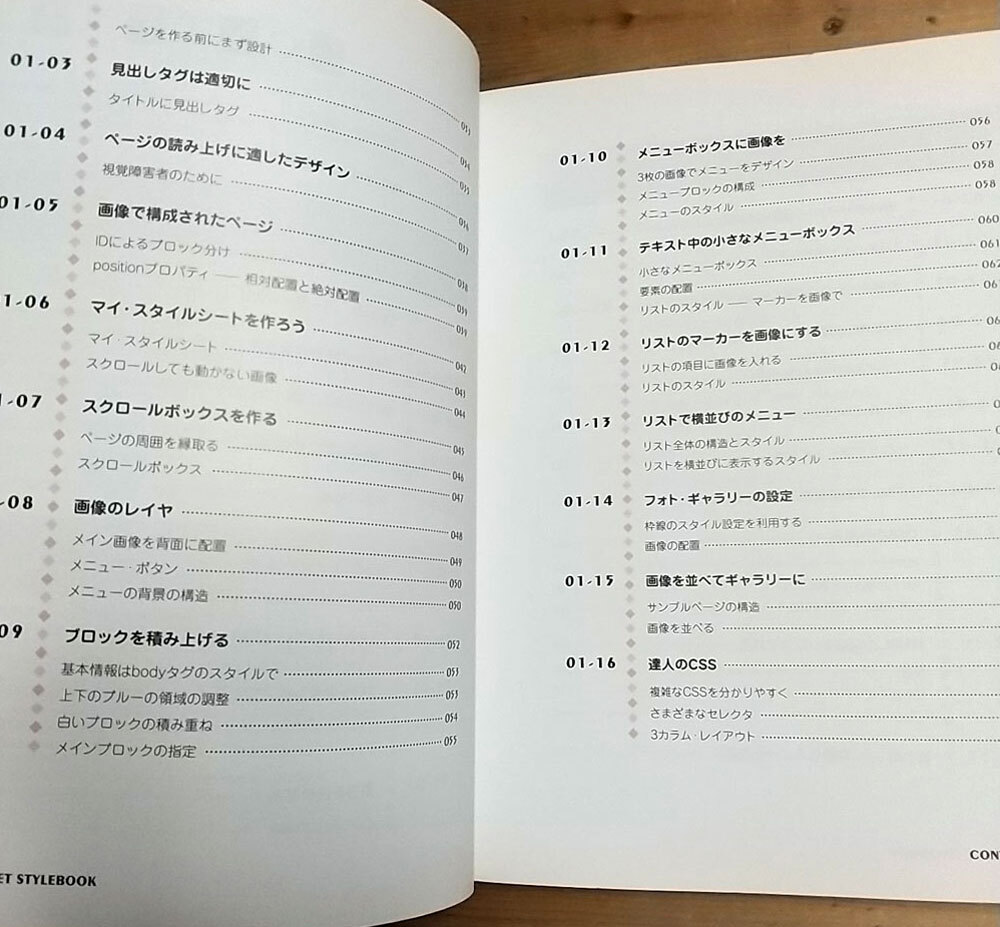 ページを作る前にまず設計
01-03 見出しタグは適切に
タイトルに見出しタグ
01-04 ページの読み上げに適したデザイン
視覚障害者のために
01-05 画像で構成されたページ
IDによるブロック分け
positionプロパティ ── 相対配置と絶対配置
01-06 マイ・スタイルシートを作ろう
マイ・スタイルシート 042
スクロールしても動かない画像 043
-07 スクロールボックスを作る 044
ページの周囲を縁取る 045
スクロールボックス 046
047
-08 画像のレイヤ 048
メイン画像を背面に配置 049
メニュー・ボタン 050
メニューの背景の構造 050
09 ブロックを積み上げる 052
基本情報はbodyタグのスタイルで 053
上下のブルーの領域の調整 053
白いブロックの積み重ね 054
メインブロックの指定 055
ET STYLEBOOK
01-10 メニューボックスに画像を 056
3枚の画像でメニューをデザイン 057
メニューブロックの構成 058
メニューのスタイル 058
01-11 テキスト中の小さなメニューボックス 060
小さなメニューボックス 061
要素の配置 062
リストのスタイル ── マーカーを画像で 06
01-12 リストのマーカーを画像にする 06
リストの項目に画像を入れる 06
リストのスタイル 0
01-13 リストで横並びのメニュー 0
リスト全体の構造とスタイル
リストを横並びに表示するスタイル
01-14 フォト・ギャラリーの設定
枠線のスタイル設定を利用する
画像の配置
01-15 画像を並べてギャラリーに
サンプルページの構造
画像を並べる
01-16 達人のCSS
複雑なCSSを分かりやすく
さまざまなセレクタ
3カラム・レイアウト
CON